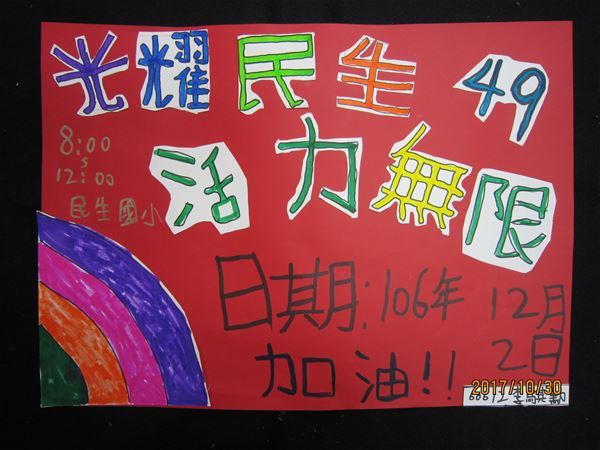 光耀民生 49
活力無限
8:00
S
12:00
民生國小
日期:106年 12月
2日
加油!!
2017/10/30